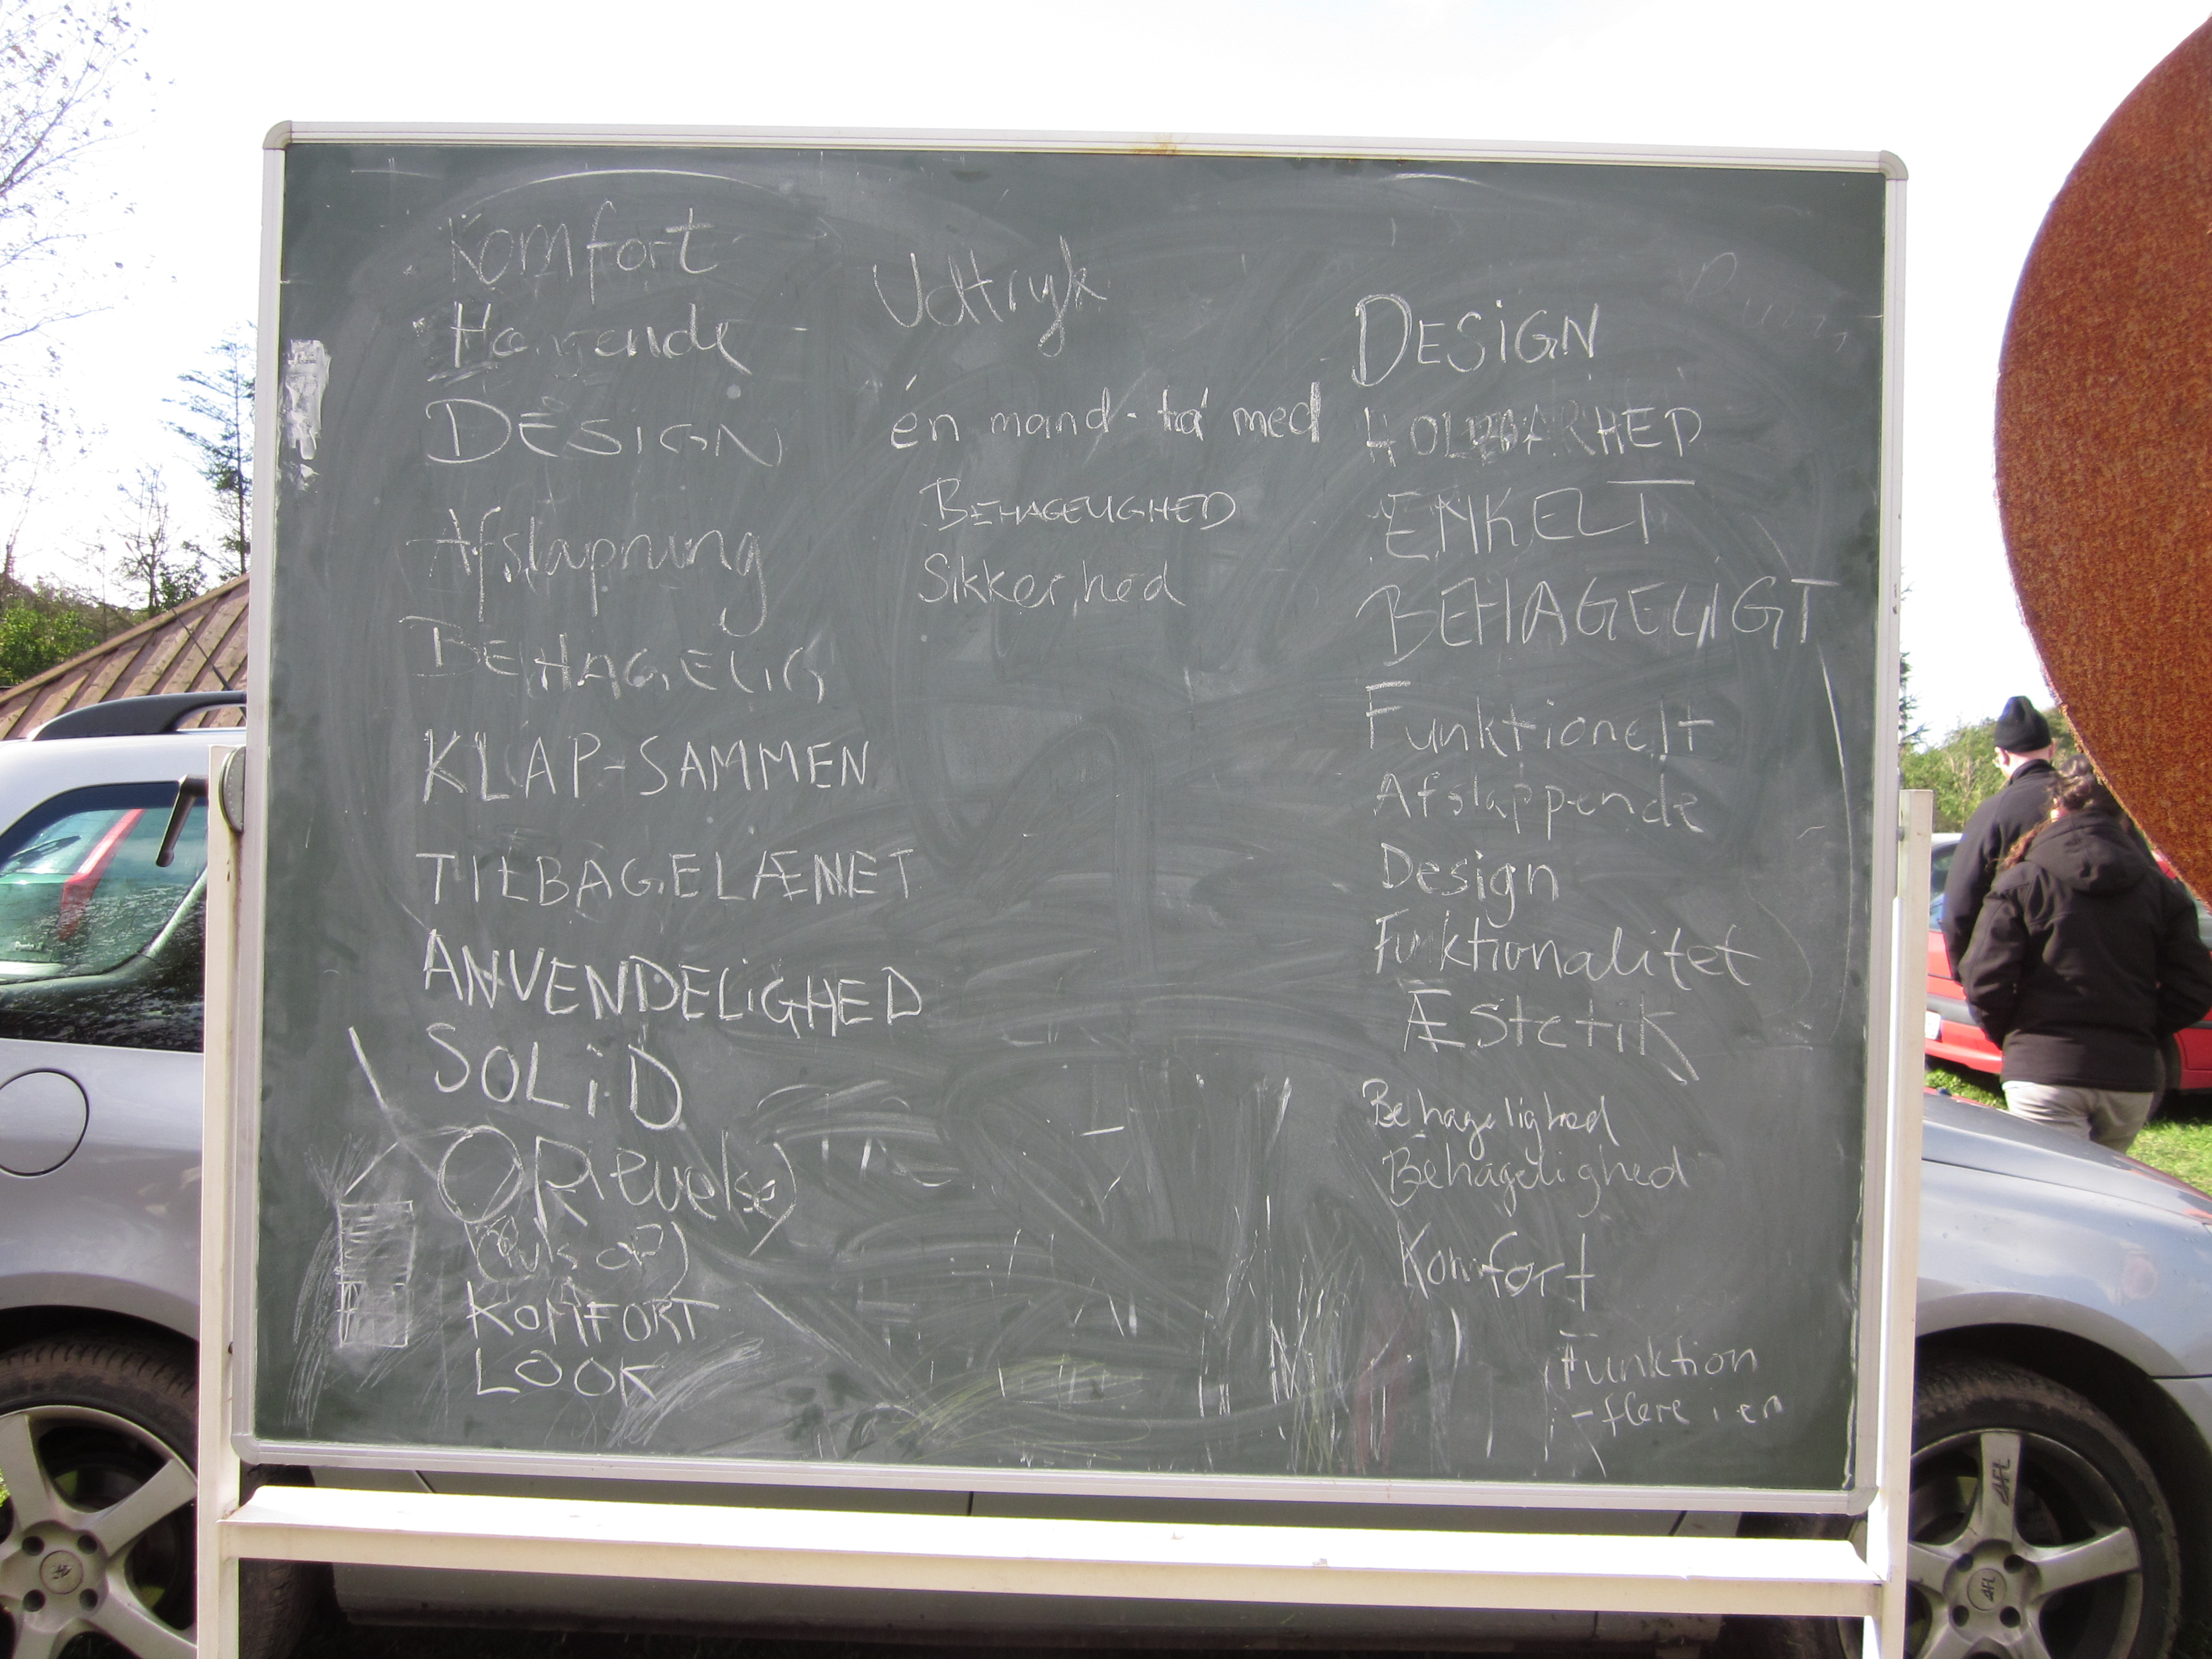 Komfort
Hængende
DESIGN
Afslapning
BEHAGELIG
KLAP-SAMMEN
TILBAGELÆNET
ANVENDELIGHED
SOLiD
OPlevelse
KOMFORT
LOOK
Udtryk
én mand - ta' med
BEHAGELIGHED
Sikkerhed
DESiGN
HOLDBARHED
ENKELT
BEHAGELIGT
Funktionelt
Afslappende
Design
Funktionalitet
ÆStetik
Behagelighed
Behagelighed
Komfort
Funktion
- flere i en